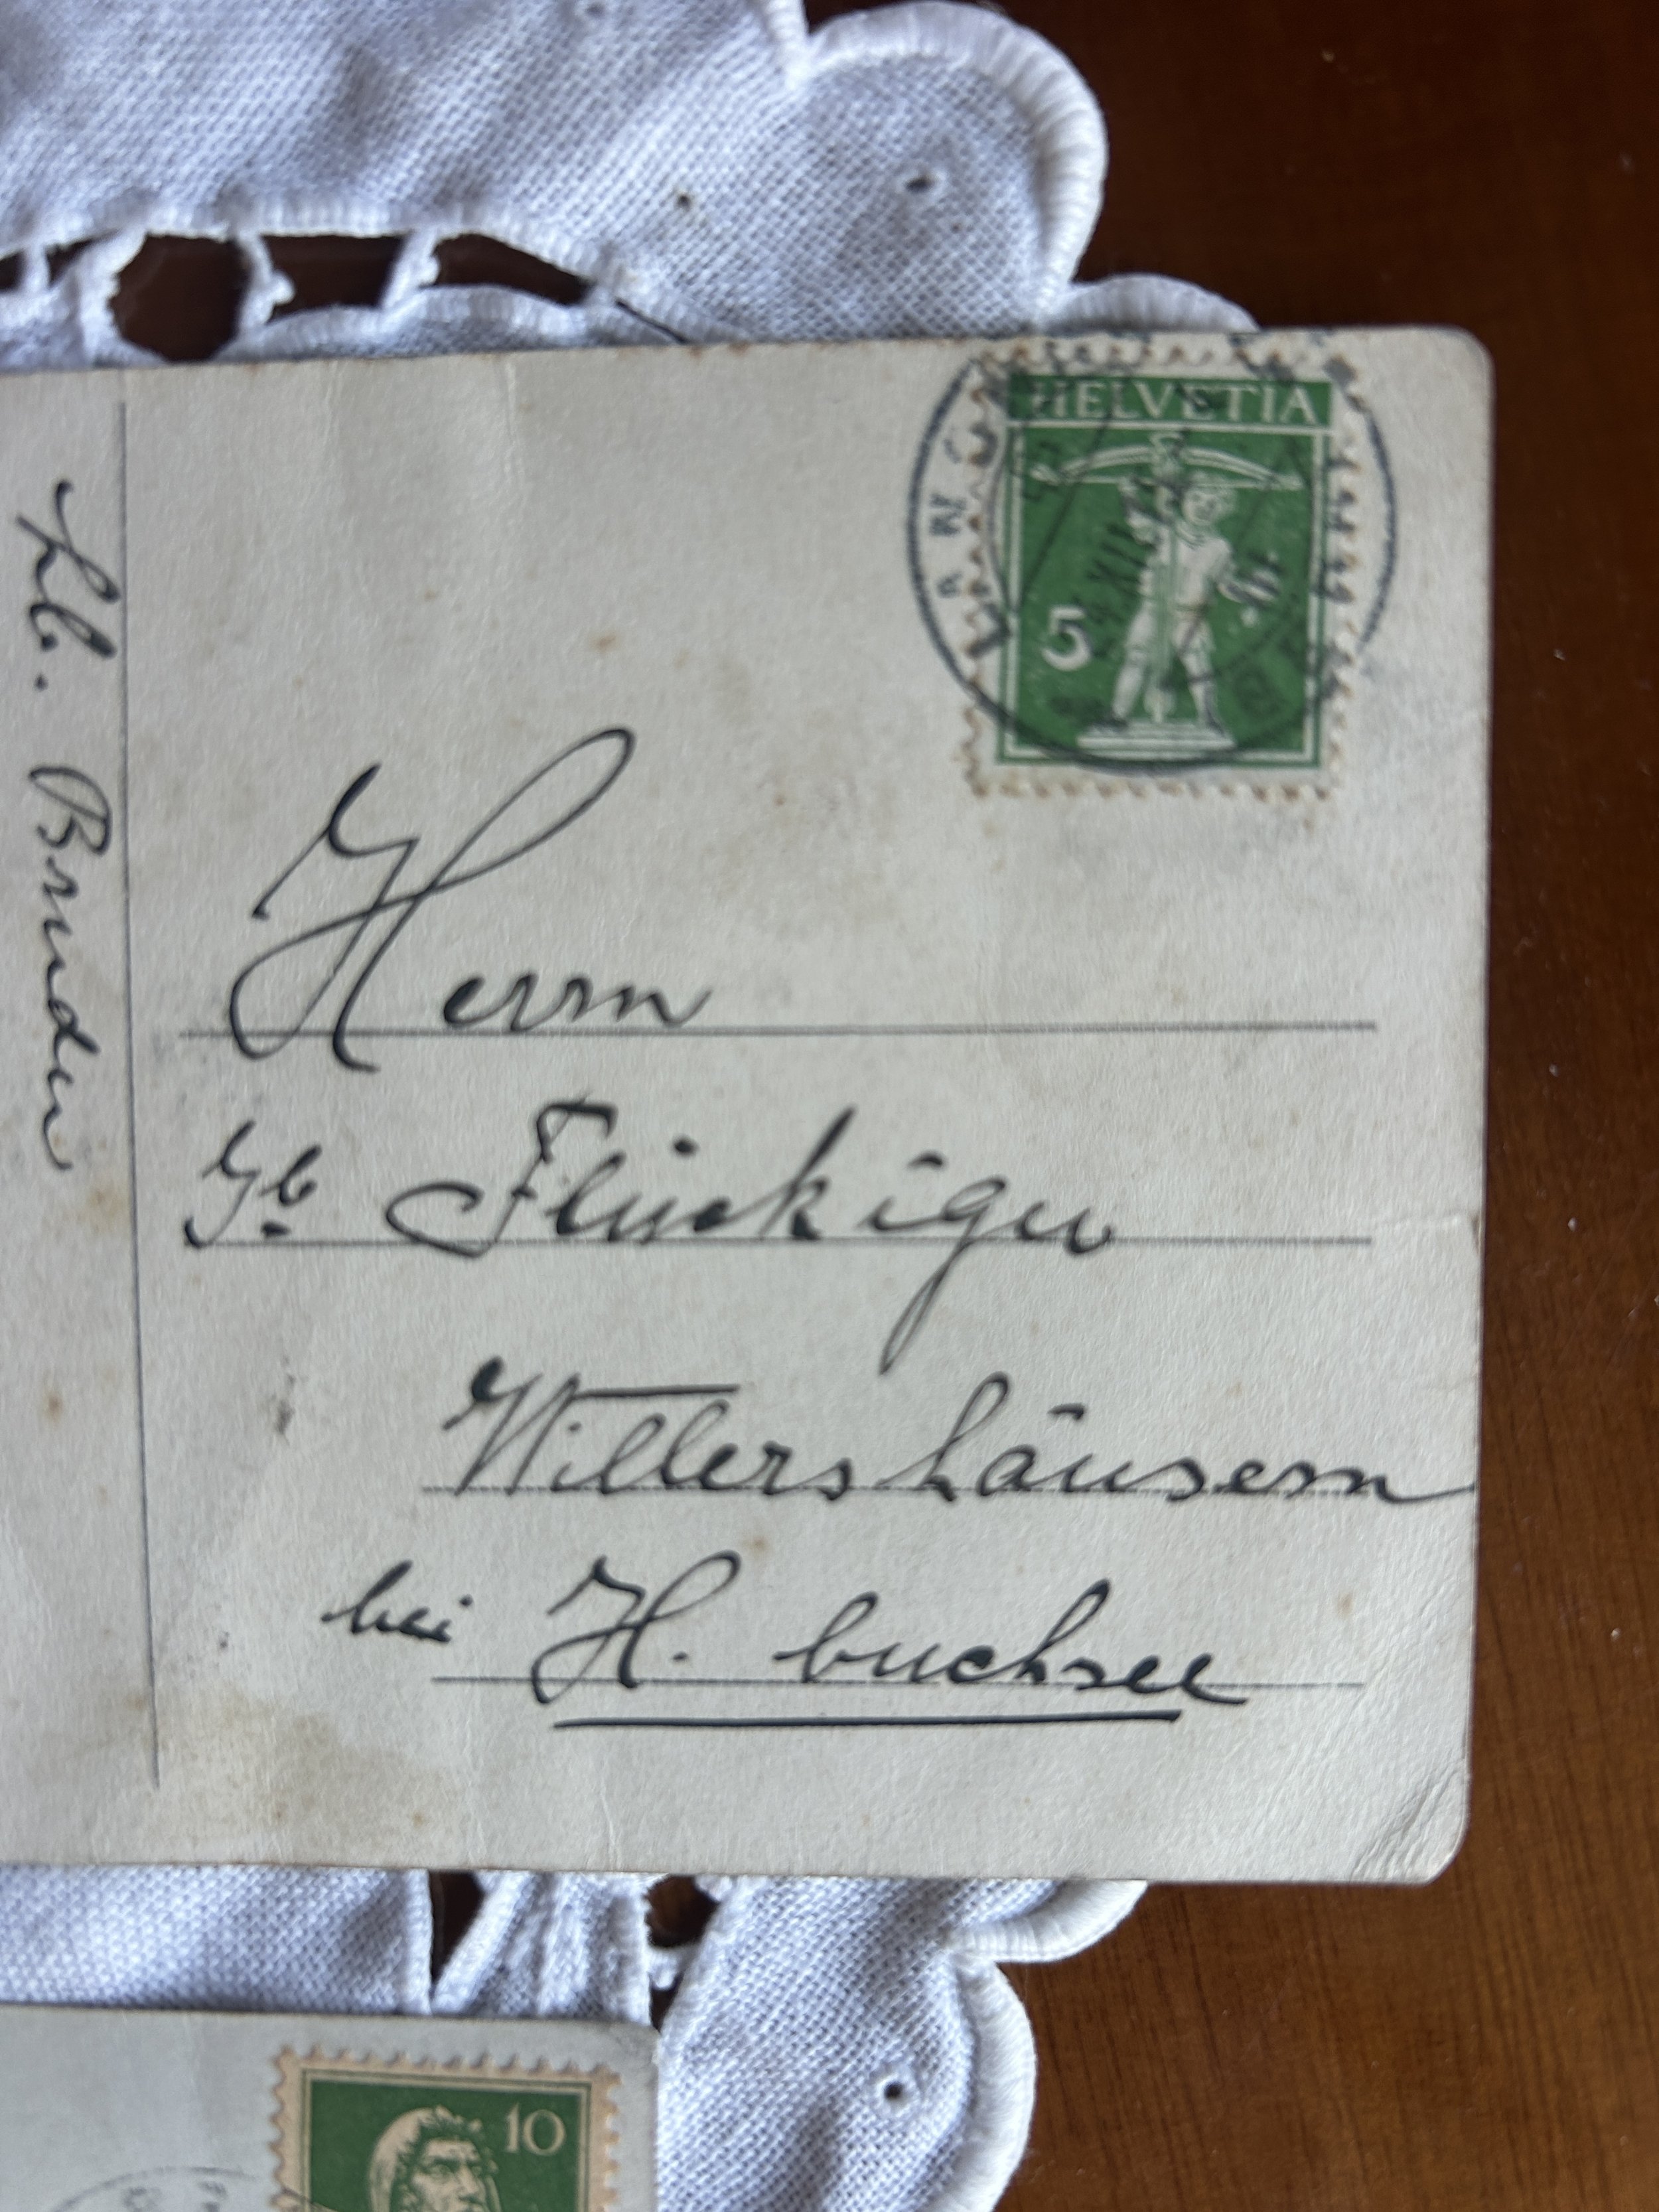 HELVETIA
5
Lb. Bruder
Herrn
Gb. Flückiger
Willershäusern
bei H. buchsee
10